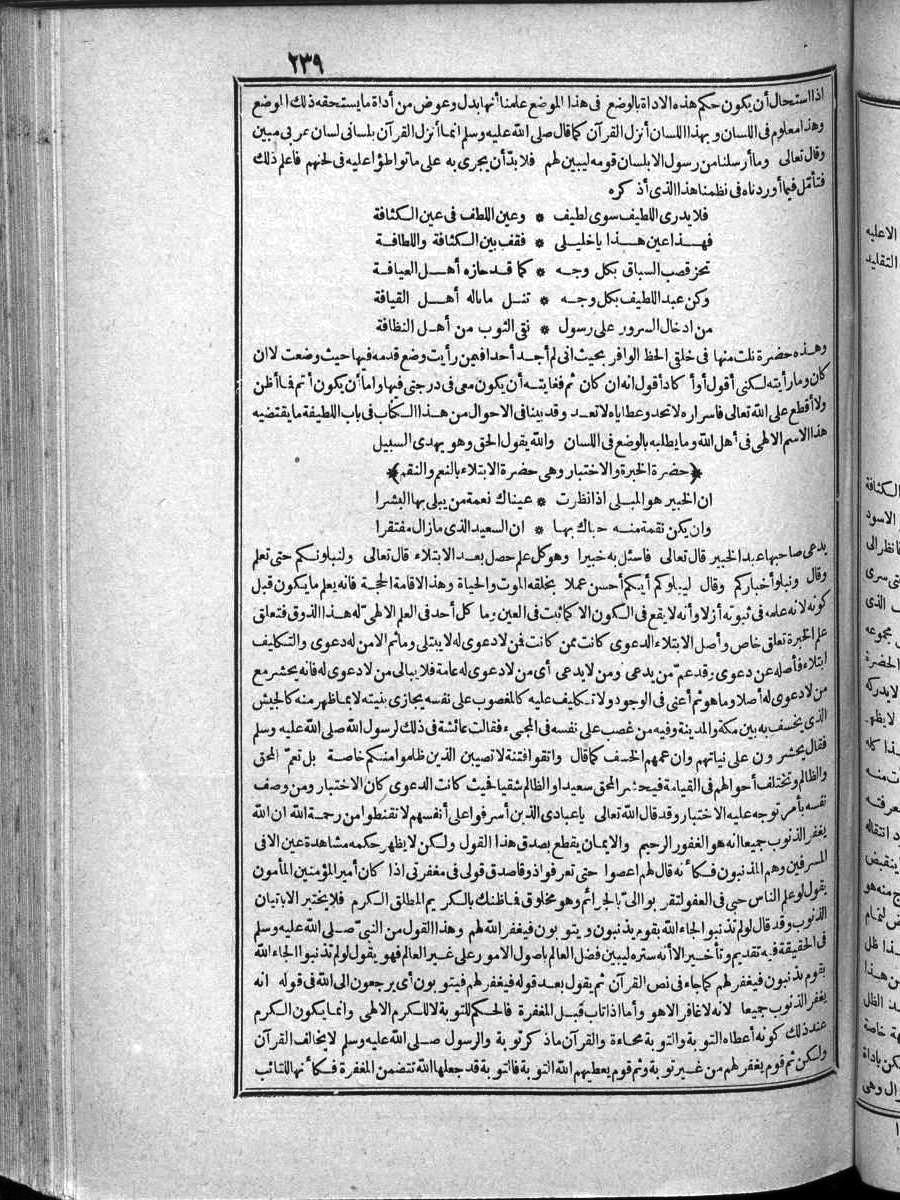 ٢٣٩
اذا استحال أن يكون حكم هذه الاداة بالوضع فى هذا الموضع علمنا أنها بدل وعوض من أداة ما يستحقه ذلك الموضع
وهذا معلوم فى اللسان وبهذا اللسان أنزل القرآن كما قال صلى الله عليه وسلم انما أنزل القرآن بلسانى لسان عربى مبين
وقال تعالى وما أرسلنا من رسول الا بلسان قومه ليبين لهم فلا بدّ أن يجرى به على ما تواطؤا عليه فى لحنهم فاعلم ذلك
فتأمّل فيما أوردناه فى نظمنا هذا الذى أذكره
فلا يدرى اللطيف سوى لطيف * وعين اللطف فى عين الكثافة
فهذا عين هذا يا خليلى * فقف بين الكثافة واللطافة
تحز قصب السباق بكل وجه * كما قد حازه أهل العيافة
وكن عبد اللطيف بكل وجه * تنل ما ناله أهل القيافة
من ادخال السرور على رسول * نقى الثوب من أهل النظافة
وهذه حضرة نلت منها فى خلقى الحظ الوافر بحيث انى لم أجد أحدا فيمن رأيت وضع قدمه فيها حيث وضعت الا ان
كان وما رأيته لكنى أقول أو أكاد أقول انه ان كان ثم فغايته أن يكون معى فى درجتى فيها واما أن يكون أتم فما أظن
ولا أقطع على الله تعالى فاسراره لا تحد وعطاياه لا تعد وقد بينا فى الاحوال من هذا الكتاب فى باب اللطيفة ما يقتضيه
هذا الاسم الالهى فى أهل الله وما يطلبه بالوضع فى اللسان والله يقول الحق وهو يهدى السبيل
﴿حضرة الخبرة والاختبار وهى حضرة الابتلاء بالنعم والنقم﴾
ان الخبير هو المبلى اذا نظرت * عيناك نعمة من يبلى بها البشرا
وان يكن نقمة منه حباك بها * ان السعيد الذى ما زال مفتقرا
يدعى صاحبها عبد الخبير قال تعالى فاسئل به خبيرا وهو كل علم حصل بعد الابتلاء قال تعالى ولنبلونكم حتى نعلم
وقال ونبلو أخباركم وقال ليبلوكم أيكم أحسن عملا بخلقه الموت والحياة وهذا لاقامة الحجة فانه يعلم ما يكون قبل
كونه لانه علمه فى ثبوته أزلا وأنه لا يقع فى الكون الا كما ثبت فى العين وما كل أحد فى العلم الالهىّ له هذا الذوق فتعلق
علم الخبرة تعلق خاص وأصل الابتلاء الدعوى كانت ممن كانت فمن لا دعوى له لا يبتلى وما ثم الا من له دعوى والتكليف
ابتلاء فأصله عن دعوى وقد عمّ من يدعى ومن لا يدعى أى من لا دعوى له عامة فلا يبالى من لا دعوى له فانه يحشر مع
من لا دعوى له أصلا وما هو ثم أعنى فى الوجود ولا تكليف عليه كالمغصوب على نفسه يجازى بنيته لا بما ظهر منه كالجيش
الذى يخسف به بين مكة والمدينة وفيه من غصب على نفسه فى المجىء فقالت عائشة فى ذلك لرسول الله صلى الله عليه وسلم
فقال يحشرون على نياتهم وان عمهم الخسف كما قال واتقوا فتنة لا تصيبن الذين ظلموا منكم خاصة بل تعمّ المحق
والظالم وتختلف أحوالهم فى القيامة فيحشر المحق سعيدا والظالم شقيا فحيث كانت الدعوى كان الاختبار ومن وصف
نفسه بأمر توجه عليه الاختبار وقد قال الله تعالى يا عبادى الذين أسرفوا على أنفسهم لا تقنطوا من رحمة الله ان الله
يغفر الذنوب جميعا انه هو الغفور الرحيم والايمان يقطع بصدق هذا القول ولكن لا يظهر حكمه مشاهدة عين الا فى
المسرفين وهم المذنبون فكأنه قال لهم اعصوا حتى تعرفوا ذوقا صدق قولى فى مغفرتى اذا كان أمير المؤمنين المأمون
يقول لو علم الناس حبى فى العفو لتقربوا الىّ بالجرائم وهو مخلوق فما ظنك بالكريم المطلق الكرم فلا يختبر الا باتيان
الذنوب وقد قال لو لم تذنبوا لجاء الله بقوم يذنبون ويتوبون فيغفر الله لهم وهذا القول من النبىّ صلى الله عليه وسلم
فى الحقيقة فيه تقديم وتأخير الا أنه ستره ليبين فضل العالم باصول الامور على غير العالم فهو يقول لو لم تذنبوا لجاء الله
بقوم يذنبون فيغفر لهم كما جاء فى نص القرآن ثم يقول بعد قوله فيغفر لهم فيتوبون أى يرجعون الى الله فى قوله انه
يغفر الذنوب جميعا لانه لا غافر الا هو وأما اذا تاب قبل المغفرة فالحكم للتوبة لا للكرم الالهى وانما يكون الكرم
عند ذلك كونه أعطاه التوبة والتوبة محاءة والقرآن ما ذكر توبة والرسول صلى الله عليه وسلم لا يخالف القرآن
ولكن ثم قوم يغفر لهم من غير توبة وثم قوم يعطيهم الله التوبة فالتوبة قد جعلها الله تتضمن المغفرة فكأنها للتائب